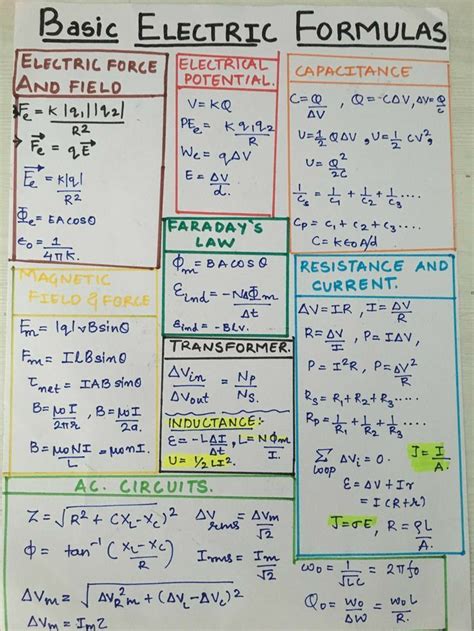 Basic Electric Formulas
Electric Force
And Field
Fe = K|q1||q2|/R²
Fe = qE
Ee = K|q|/R²
Φe = EA cosθ
ε0 = 1/4πK.
Electrical
Potential.
V = KQ
PEe = Kq1q2/R
Wc = qΔV
E = ΔV/d.
Capacitance
C = Q/ΔV , Q = CΔV, ΔV = Q/C
U = 1/2 QΔV , U = 1/2 CV²,
U = Q²/2C
1/Cs = 1/C1 + 1/C2 + 1/C3 ....
Cp = C1 + C2 + C3 ....
C = Kε0A/d
Faraday's
Law
Φm = BA cosθ
Eind = -NΔΦm/Δt
εind = -BLV.
Magnetic
Field & Force
Fm = |q|vBsinθ
Fm = ILBsinθ
τnet = IABsinθ
B = μ0I/2πr , B = μ0I/2a.
B = μ0NI/L = μ0nI.
Transformer.
ΔVin/ΔVout = Np/Ns.
Inductance:
ε = -LΔI/Δt, L = NΦm/I.
U = 1/2 LI².
Resistance and
Current.
ΔV = IR, I = ΔV/R
R = ΔV/I , P = IΔV,
P = I²R , P = ΔV²/R
Rs = R1 + R2 + R3 ....
Rp = 1/R1 + 1/R2 + 1/R3 ....
Σloop ΔVi = 0. J = I/A.
ε = ΔV + Ir
= I(R+r)
J = σE, R = ρL/A.
AC. Circuits.
Z = √R² + (XL - XC)² ΔVrms = ΔVm/√2
Φ = tan⁻¹ (XL - XC/R) Irms = Im/√2
ΔVm = √ΔVR²m + (ΔVL - ΔVC)²
ΔVm = ImZ
ω0 = 1/√LC = 2πf0
Q0 = ω0/Δω = ω0L/R